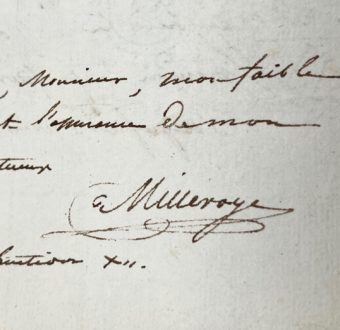 , Monsieur, mon faible
et l'assurance de mon
tueux
Millevoye
fructidor XII.